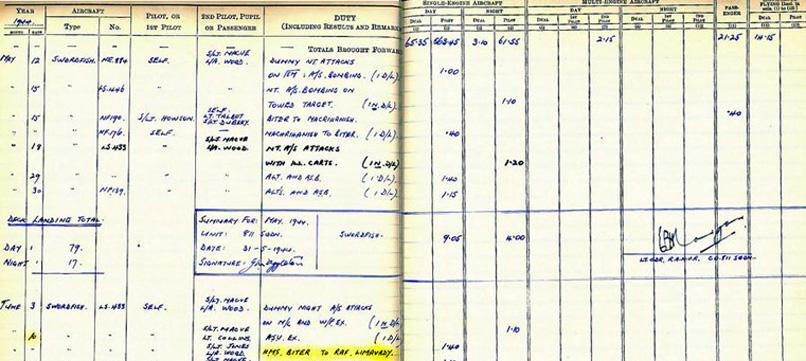 YEAR AIRCRAFT PILOT, OR 2ND PILOT, PUPIL DUTY SINGLE-ENGINE AIRCRAFT MULTI-ENGINE AIRCRAFT
1944 Type No. 1ST PILOT OR PASSENGER (INCLUDING RESULTS AND REMARKS DAY NIGHT DAY NIGHT PASS-ENGER
MONTH DATE DUAL PILOT DUAL PILOT
— — — — TOTALS BROUGHT FORWARD 65·35 3·10 61·55 2·15 21·25 14·15
MAY 12 SWORDFISH. NE.884 SELF. S/LT. MACVE L/A. WOOD. DUMMY NT ATTACKS
A/S. BOMBING. (1 D/L) 1·00
" 15 " " " NT. A/S BOMBING ON
TOWED TARGET. (1 N. D/L) 1·10
" 15 " NF190. S/LT. HOWSON. SELF. LT. TALBOT BITER TO MACRIHANISH. ·40
" " " SELF. — MACHRIHANISH TO BITER. (1 D/L) ·40
" 18 " LS.433 " S/LT. MACVE L/A. WOOD. NT. A/S ATTACKS
WITH ILL. CARTS. (1 N. D/L) 1·20
" 29 " " " " ALT. AND ASB. (1 D/L) 1·40
" 30 " " " ALTS. AND ASB. (1 D/L) 1·15
DECK LANDING TOTAL.
DAY : 79.
NIGHT : 17.
SUMMARY FOR: MAY, 1944.
UNIT: 811 SQDN. SWORDFISH. 9·05 4·00
DATE: 31-5-1944.
SIGNATURE:
LT. CDR. CO. 811 SQDN.
JUNE 3 SWORDFISH. LS.433 SELF. S/LT. MACVE L/A. WOOD. DUMMY NIGHT A/S ATTACKS
ON M/C AND W/P. EX. (1 N D/L) 1·10
" 10 " " S/LT. MACVE LT. COLLINS. ASV. EX. (1 D/L)
S/LT. JONES L/A. WOOD. HMS. BITER TO RAF. LIMAVADY. 1·40